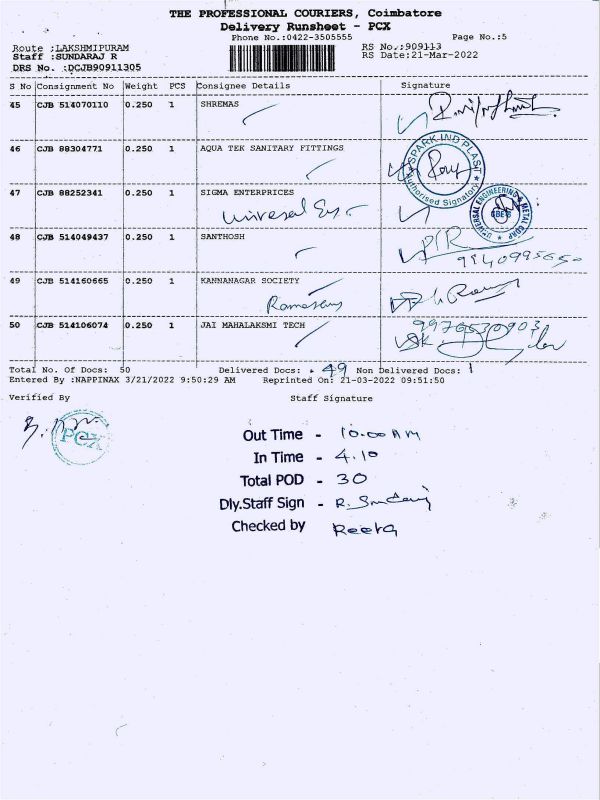 THE PROFESSIONAL COURIERS, Coimbatore
Delivery Runsheet - PCX
Phone No.:0422-3505555 Page No.:5
Route :LAKSHMIPURAM RS No.:909113
Staff :SUNDARAJ R RS Date:21-Mar-2022
DRS No. :DCJB90911305
S No Consignment No Weight PCS Consignee Details Signature
45 CJB 514070110 0.250 1 SHREMAS
46 CJB 88304771 0.250 1 AQUA TEK SANITARY FITTINGS
SPARK IND PLAST
Authorised Signatory
47 CJB 88252341 0.250 1 SIGMA ENTERPRICES
Universal
UNIVERSAL ENGINEERING & METAL CORP
CBE-6
48 CJB 514049437 0.250 1 SANTHOSH
9940995650
49 CJB 514160665 0.250 1 KANNANAGAR SOCIETY
Ramasamy
50 CJB 514106074 0.250 1 JAI MAHALAKSMI TECH
9976530903
Total No. Of Docs: 50 Delivered Docs: 49 Non Delivered Docs: 1
Entered By :NAPPINAX 3/21/2022 9:50:29 AM Reprinted On: 21-03-2022 09:51:50
Verified By Staff Signature
PCX
Out Time - 10.00 AM
In Time - 4.10
Total POD - 30
Dly.Staff Sign - R. Sundaraj
Checked by Reeta